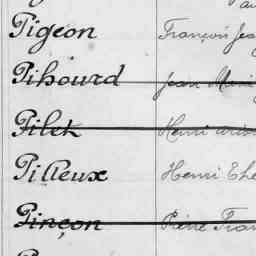 Pigeon François Jea
Pihourd Jean Marie
Pilet Henri
Pilleux Henri The
Pinçon Pierre Fran